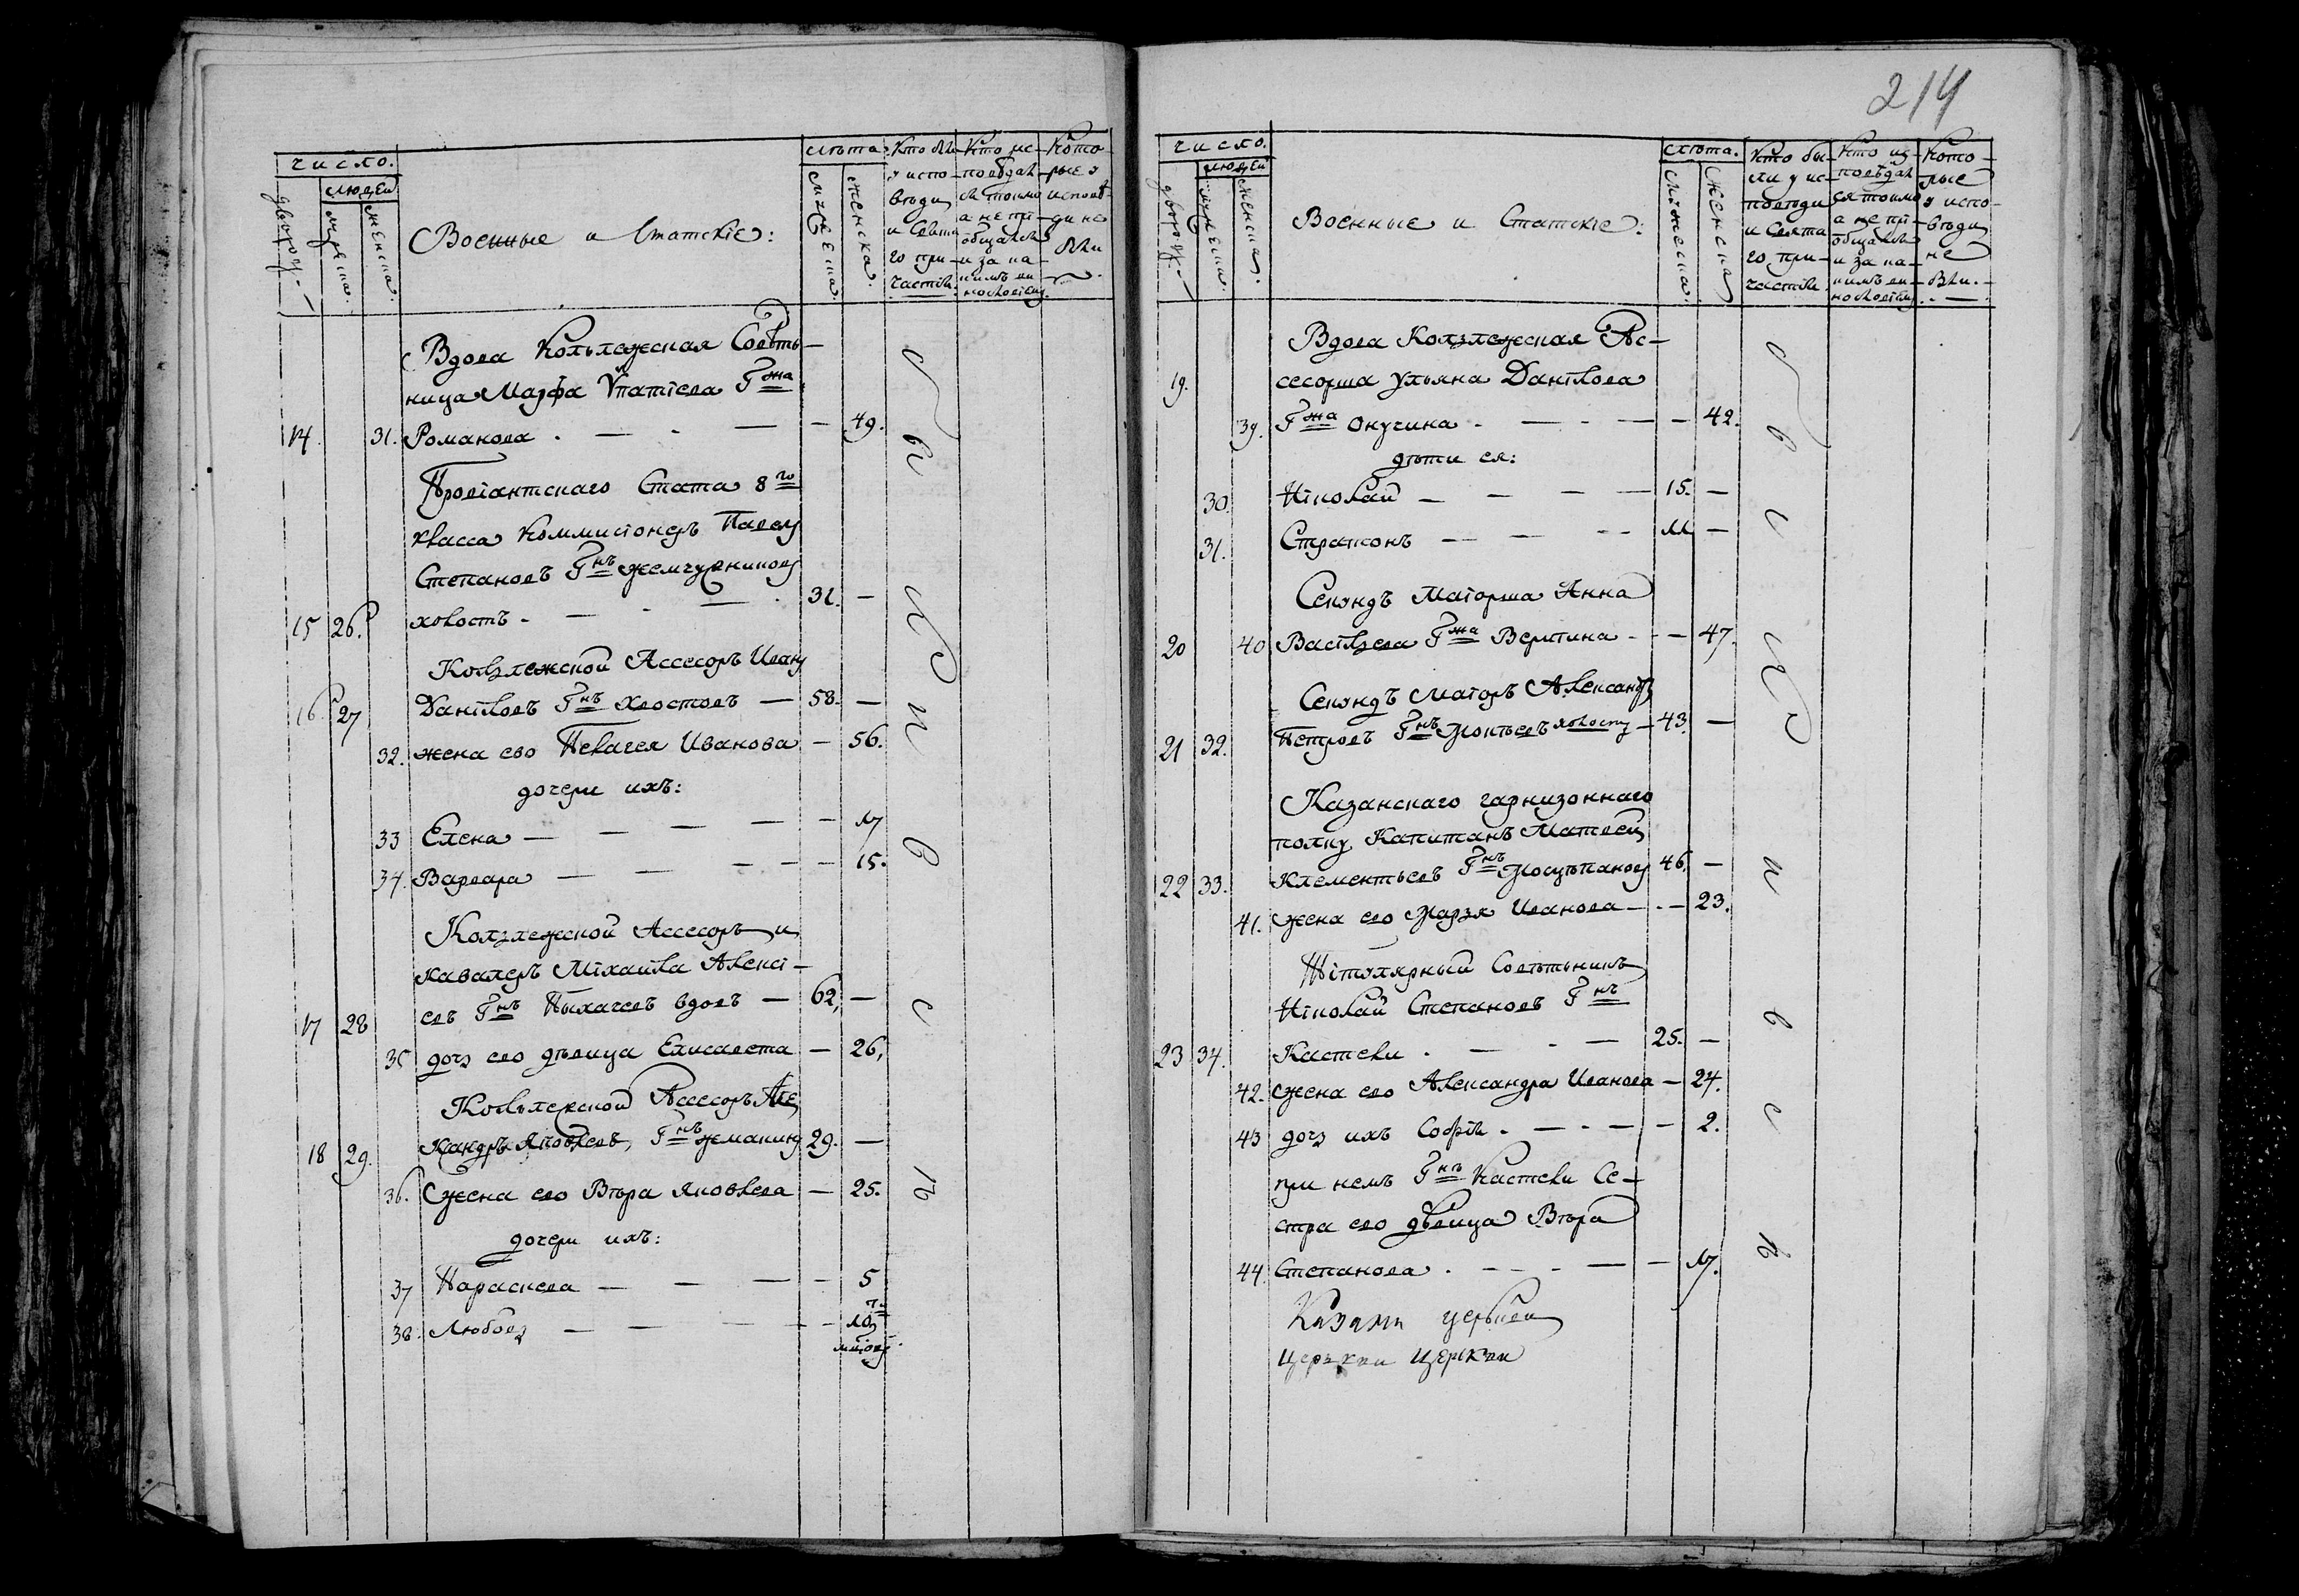 214
число.
людей
дворовъ.
мужеска.
женска.
Военные и Статскіе:
лѣта.
мужеска.
женска.
Кто были
у испо-
вѣди
и Свята
го при-
частія.
Кто ис-
повѣдал
ся токмо
а не прі-
общался
и за ка-
кимъ ви
нословіемъ.
Кото-
рые у
исповѣ-
ди не
были
Вдова Кольлежская Совѣт-
ница Марфа Ипатіева Гжа
14. 31. Романова . — - — — 49.
Провіантскаго Стата 8го
класса Коммисіонеръ Павелъ
Степановъ Гнъ Жемчужниковъ
15 26. холостъ . — - — . 31. —
Кольлежской Ассесоръ Иванъ
16. 27 Даніловъ Гнъ Хвостовъ — 58. —
32. жена ево Пелагея Иванова — 56.
дочери ихъ:
33 Елена — — — — — 17
34. Варвара — — — — — 15.
Кольлежской Ассесоръ и
кавалеръ Міхаила Алексі-
17 28 евъ Гнъ Пыхачевъ вдовъ — 62, —
35 дочь ево дѣвица Елисавета — 26,
Кольлежской Ассесоръ Але
18 29. ксандръ Яковлевъ, Гнъ Жмакинъ 29. —
36. Жена ево Вѣра Яковлева — 25.
дочери ихъ:
37 Параскева — — — — 5
38. Любовь — — — — 10ти
мцовъ.
число.
людей
дворовъ.
мужеска.
женска.
Военные и Статскіе:
лѣта.
мужеска.
женска
Кто бы-
ли у ис-
повѣди
и Свята
го при-
частія
Кто ис-
повѣдал
ся токмо
а не прі-
общался
и за ка-
кимъ ви
нословіемъ
Кото-
рые
у испо-
вѣди
не
были.
Вдова Кольлежская Ас-
19. сесорша Ульяна Данілова
39. Гжа Окучина . — - — — 42.
дѣти ея:
30. Ніколай — — — — 15. —
31. Стратонъ — — — - 11 —
Секундъ Маіорша Анна
20 40 Васільева Гжа Верпина - - — 47.
Секундъ Маіоръ Александръ
21 32. Петровъ Гнъ Мокѣевъ холостъ — 43. —
Казанскаго гарнизоннаго
полку Капитанъ Матвей
22 33. Клементьевъ Гнъ 46. —
41. жена ево Марья Иванова — - — 23.
Тітулярный Совѣтникъ
Ніколай Степановъ Гнъ
23 34. Кастели . — - — 25. —
42. жена ево Александра Иванова — 24.
43 дочь ихъ Софія . — - — — 2.
при немъ Гнъ Кастели Се-
стра ево дѣвица Вѣра
44. Степанова . — - — — 17.
церькви церькви